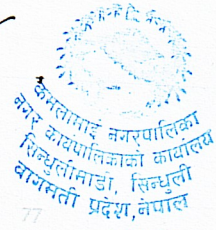 कमलामाई नगरपालिका
नगर कार्यपालिकाको कार्यालय
सिन्धुलीमाडी, सिन्धुली
बागमती प्रदेश, नेपाल
77